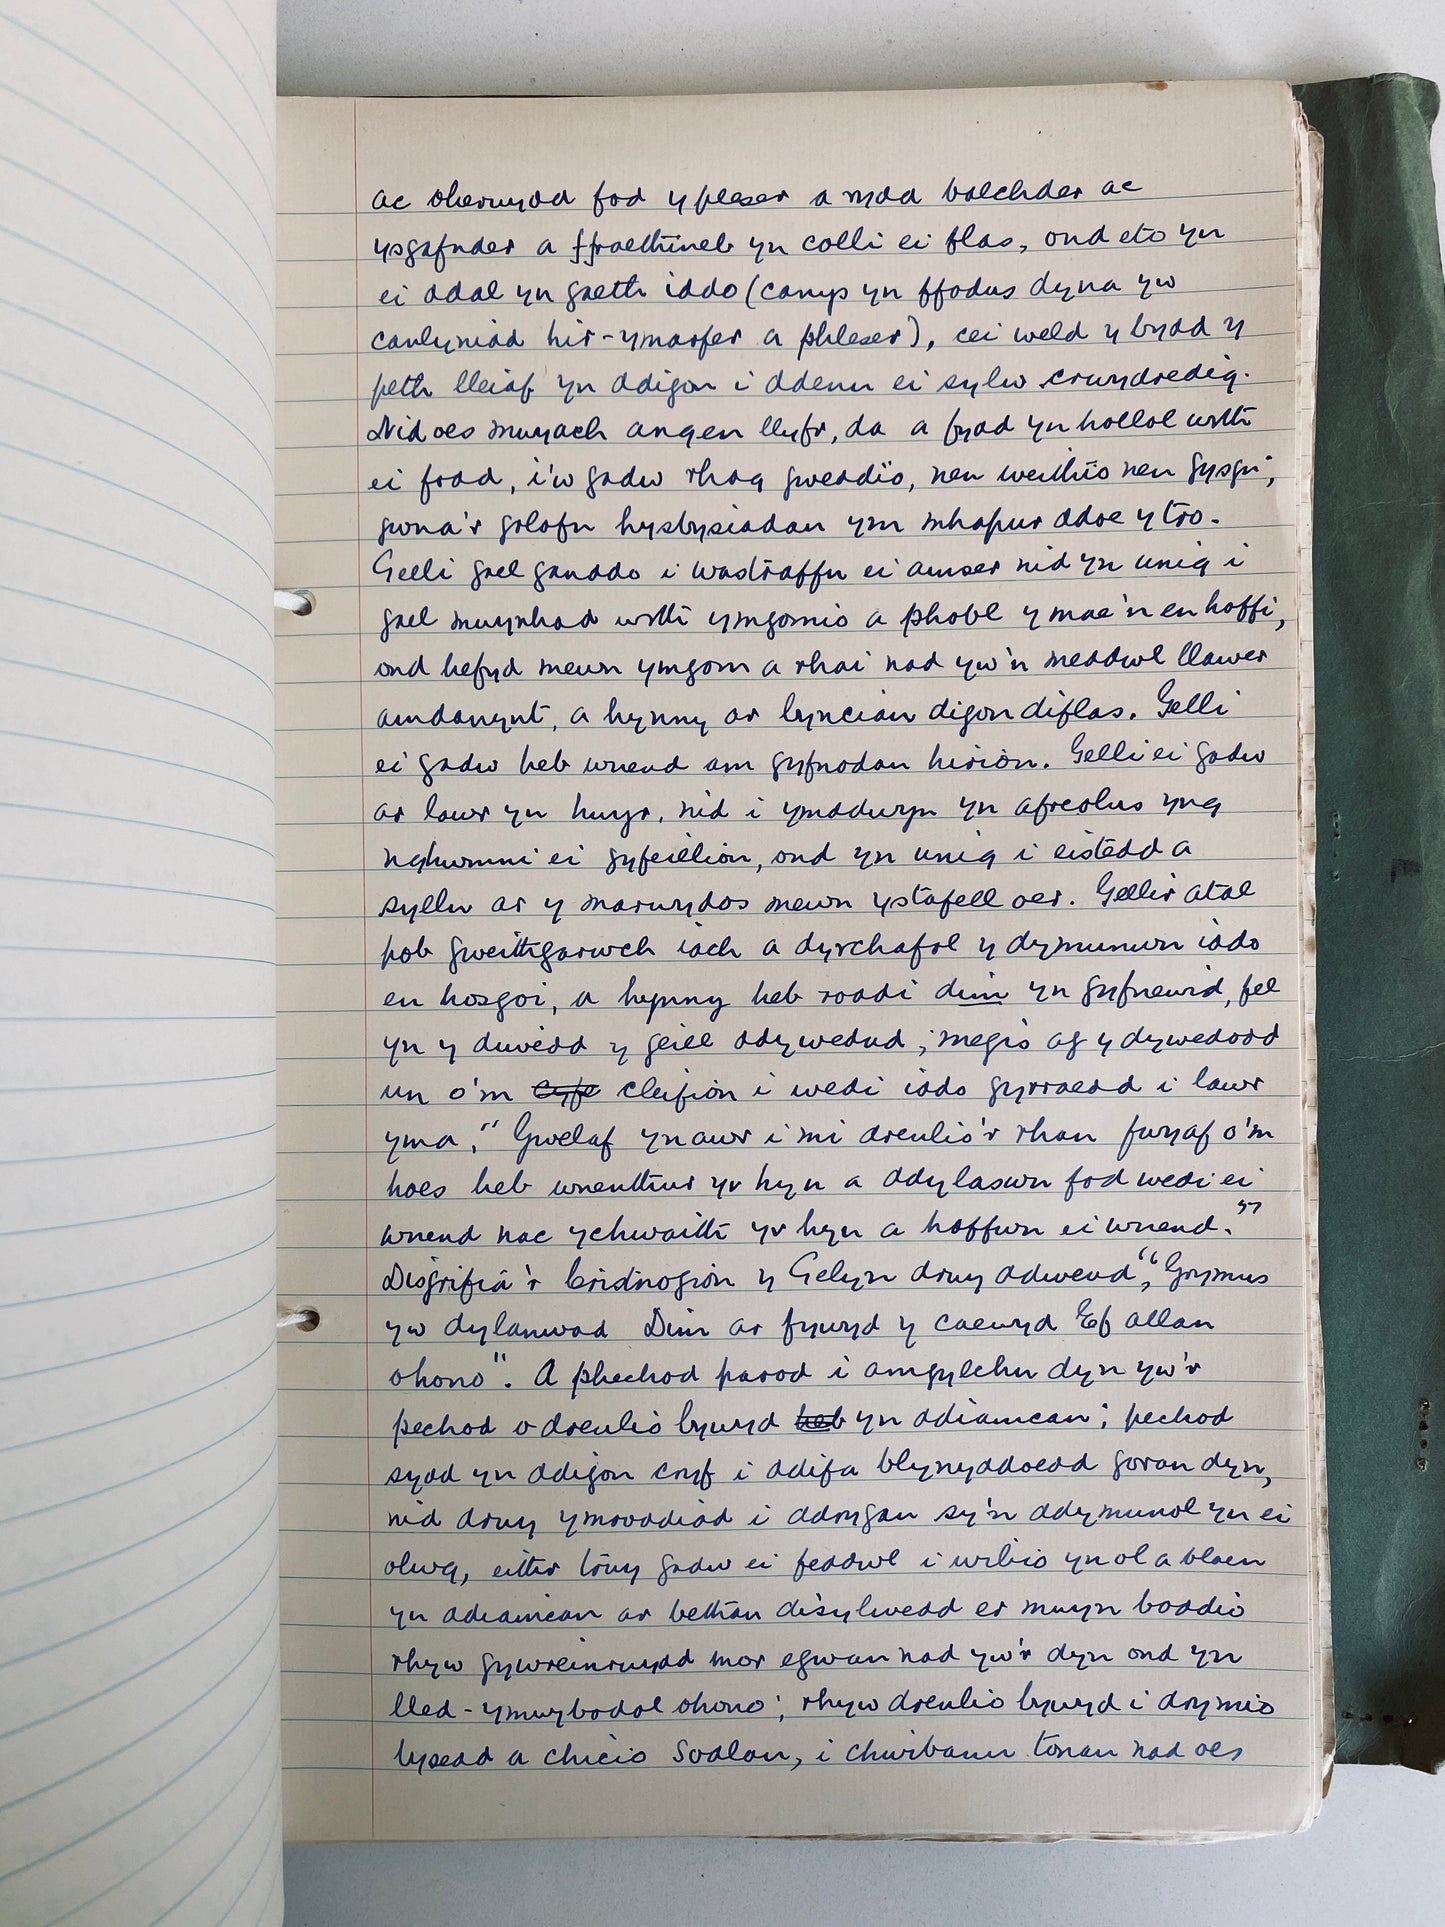 ac oherwydd fod y pleser a rydd balchder ac
ysgafnder a ffraethineb yn colli ei flas, ond eto yn
ei ddal yn gaeth iddo (canys yn ffodus dyna yw
canlyniad hir-ymarfer a phleser), cei weld y bydd y
peth lleiaf yn ddigon i ddenu ei sylw crwydredig.
Nid oes mwyach angen llyfr, da a fydd yn hollol wrth
ei fodd, i'w gadw rhag gweddïo, neu weithio neu gysgu;
gwna'r golofn hysbysiadau ym mhapur ddoe y tro.
Gelli gael ganddo i wastraffu ei amser nid yn unig i
gael mwynhad wrth ymgomio a phobl y mae'n eu hoffi,
ond hefyd mewn ymgom a rhai nad yw'n meddwl llawer
amdanynt, a hynny ar bynciau digon diflas. Gelli
ei gadw heb wneud am gyfnodau hirion. Gelli ei gadw
ar lawr yn hwyr, nid i ymddwyn yn afreolus yng
nghwmni ei gyfeillion, ond yn unig i eistedd a
syllu ar y marwydos mewn ystafell oer. Gellir atal
pob gweithgarwch iach a dyrchafol y dymunwn iddo
eu hosgoi, a hynny heb roddi dim yn gyfnewid, fel
yn y diwedd y geill ddywedud; megis ag y dywedodd
un o'm cyfe cleifion i wedi iddo gyrraedd i lawr
yma, "Gwelaf yn awr i mi dreulio'r rhan fwyaf o'm
hoes heb wneuthur yr hyn a ddylaswn fod wedi ei
wneud nac ychwaith yr hyn a hoffwn ei wneud."
Disgrifia'r Cristnogion y Gelyn drwy ddweud, "Grymus
yw dylanwad Dim ar fywyd y caewyd Ef allan
ohono". A phechod parod i amgylchu dyn yw'r
pechod o dreulio bywyd heb yn ddiamcan; pechod
sydd yn ddigon cryf i ddifa blynyddoedd gorau dyn,
nid drwy ymroddiad i ddrygau sy'n ddymunol yn ei
olwg, eithr trwy gadw ei feddwl i wibio yn ol a blaen
yn ddiamcan ar bethau disylwedd er mwyn boddio
rhyw gywreinrwydd mor egwan nad yw'r dyn ond yn
lled-ymwybodol ohono; rhyw dreulio bywyd i drymio
bysedd a chicio sodlau, i chwibanu tonau nad oes